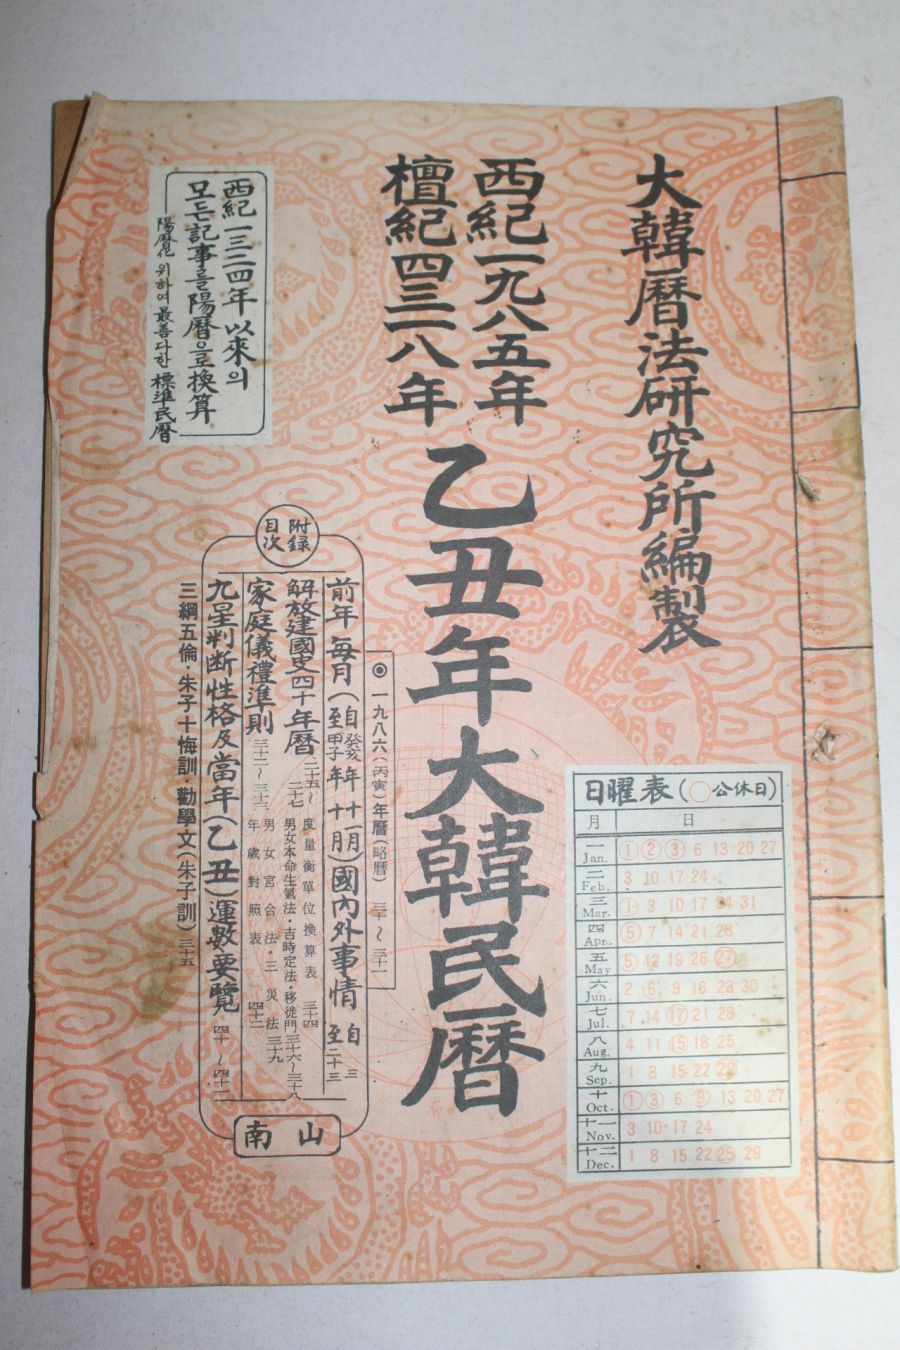 大韓曆法研究所編製
西紀一九八五年
檀紀四三一八年
乙丑年大韓民曆
西紀一三三四年以來의
모든記事를陽曆으로換算
陽曆化 위하여 最善다한 標準民曆
附錄
目次
◎一九八六(丙寅)年曆(略曆) 三十~三十一
前年每月(自癸亥年十一月 至甲子年十月)國內外事情 自三 至二十三
解放建國史四十年曆 二十五~二十七 度量衡單位換算表 三十四
男女本命生氣法·吉時定法·移徙門 三十六~三十八
家庭儀禮準則 三十二~三十三 男女宮合法·三災法 三十九
年歲對照表 四十二
九星判斷性格及當年(乙丑)運數要覽 四十~四十二
三綱五倫·朱子十悔訓·勸學文(朱子訓) 三十五
南山
日曜表(○公休日)
月 日
一 Jan. 1 2 3 6 13 20 27
二 Feb. 3 10 17 24
三 Mar. 1 3 10 17 24 31
四 Apr. 5 7 14 21 28
五 May 5 12 19 26 27
六 Jun. 2 6 9 16 23 30
七 Jul. 7 14 17 21 28
八 Aug. 4 11 15 18 25
九 Sep. 1 8 15 22 29
十 Oct. 1 3 6 9 13 20 27
十一 Nov. 3 10 17 24
十二 Dec. 1 8 15 22 25 29